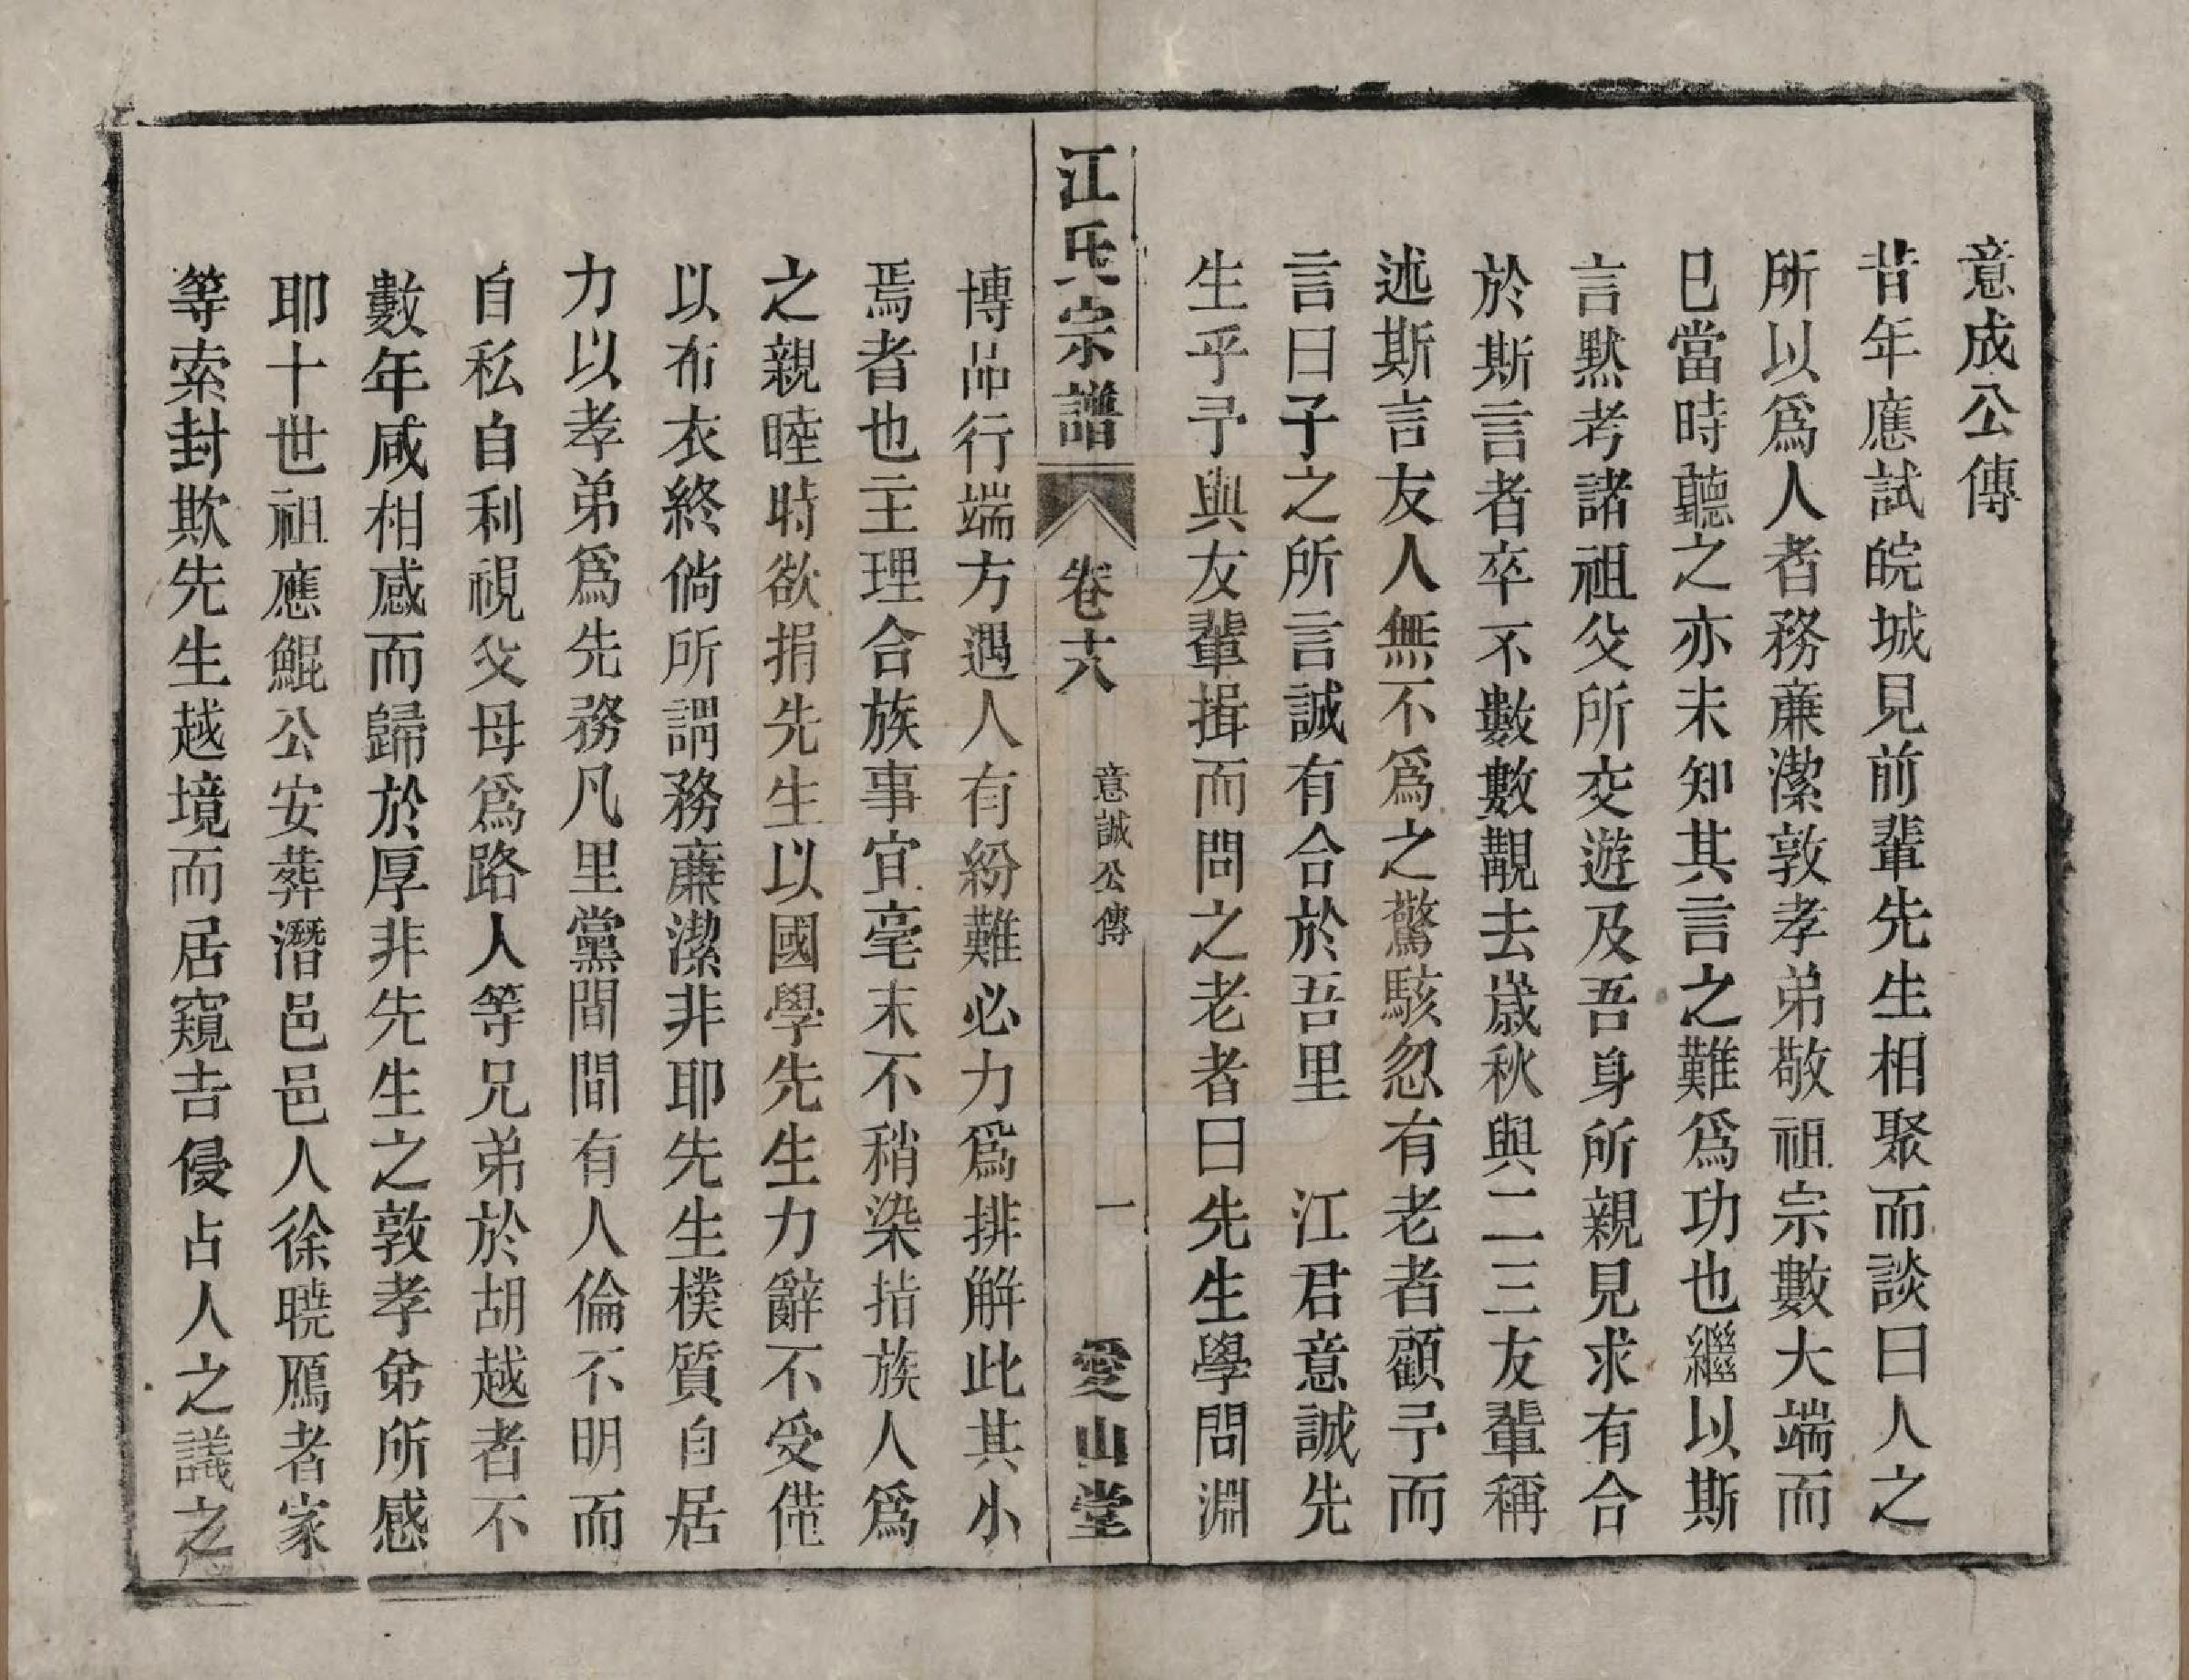 意成公傳
昔年應試皖城見前輩先生相聚而談曰人之
所以爲人者務亷潔敦孝弟敬祖宗數大端而
巳當時聽之亦未知其言之難爲功也繼以斯
言黙考諸祖父所交遊及吾身所親見求有合
於斯言者卒不數數覯去嵗秋與二三友輩稱
述斯言友人無不爲之驚駭忽有老者顧予而
言曰子之所言誠有合於吾里　江君意誠先
生乎予與友輩揖而問之老者曰先生學問淵
江氏宗譜　卷十八　意誠公傳　一　愛山堂
博品行端方遇人有紛難必力爲排解此其小
焉者也主理合族事宜毫末不稍染㧖族人爲
之親睦時欲捐先生以國學先生力辭不受僅
以布衣終倘所謂務亷潔非耶先生樸質自居
力以孝弟爲先務凡里黨間間有人倫不明而
自私自利視父母爲路人等兄弟於胡越者不
數年咸相感而歸於厚非先生之敦孝弟所感
耶十世祖應鯤公安葬潛邑邑人徐曉鴈者家
等索封欺先生越境而居窺吉侵占人之議之